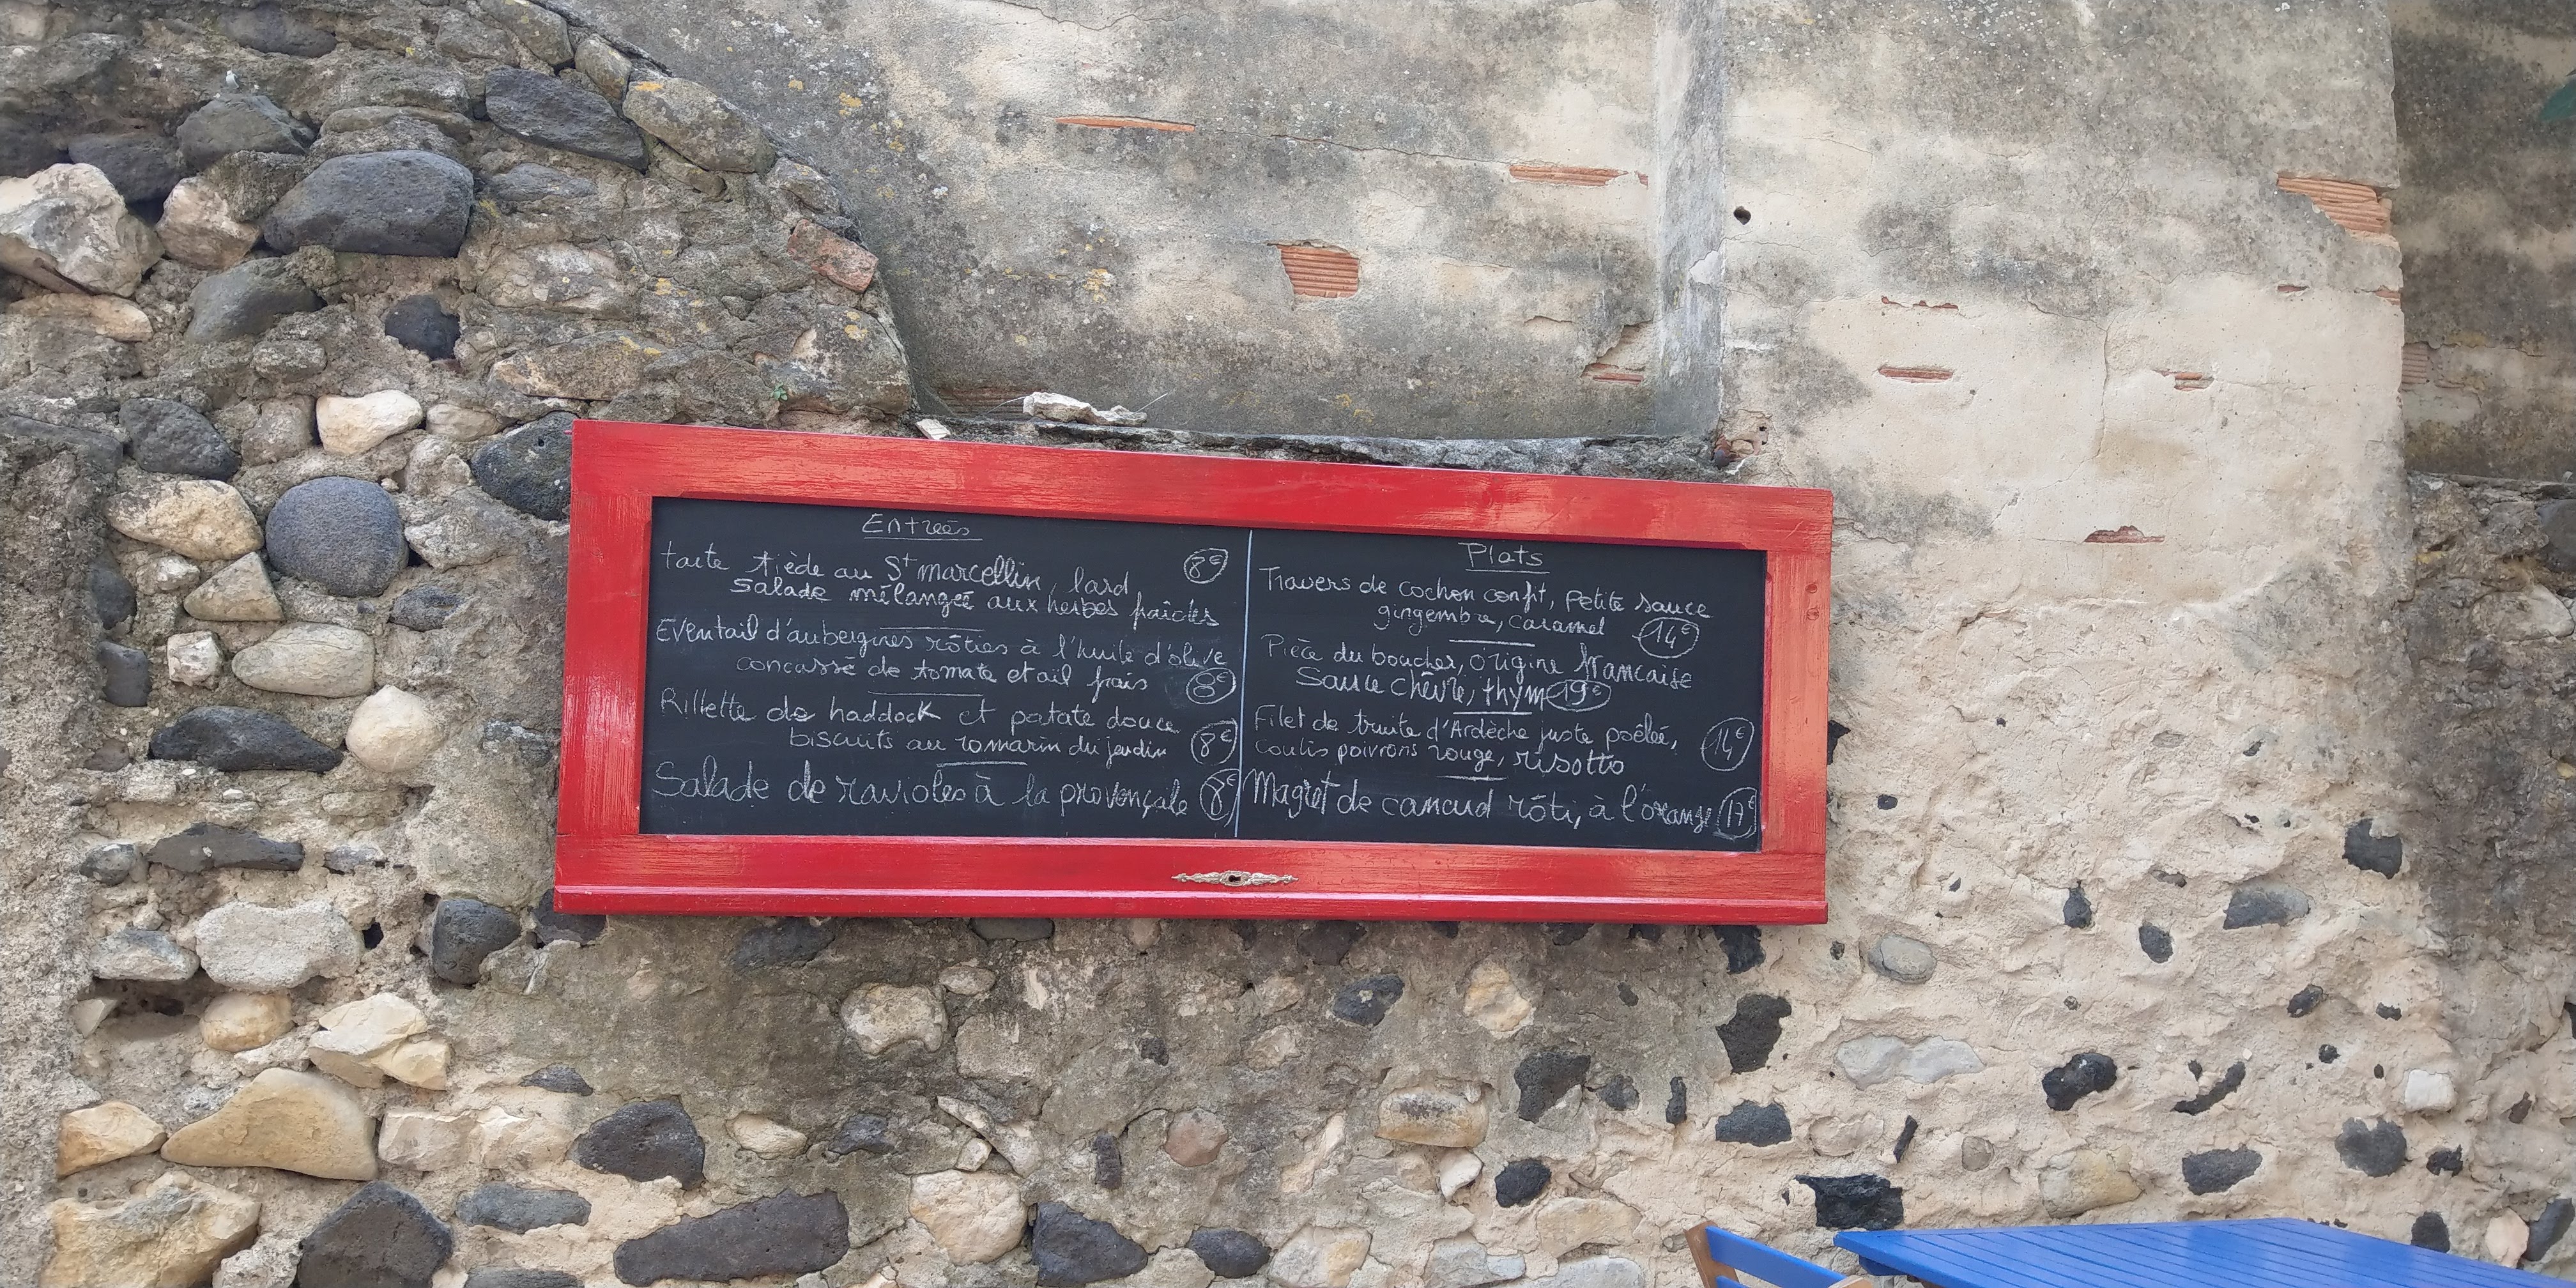 Entreés
tarte tiède au St marcellin, lard 8€
salade mélangée aux herbes fraîches
Éventail d'aubergines rôties à l'huile d'olive
concassé de tomate et ail frais 8€
Rillette de haddock et patate douce
biscuits au romarin du jardin 8€
Salade de ravioles à la provençale 8€
Plats
Travers de cochon confit, petite sauce
gingembre, caramel 14€
Pièce du boucher, origine francaise
Sauce chèvre, thym 19€
Filet de truite d'Ardèche juste poêlée,
coulis poivrons rouge, risotto 14€
Magret de canard rôti, à l'orange 17€